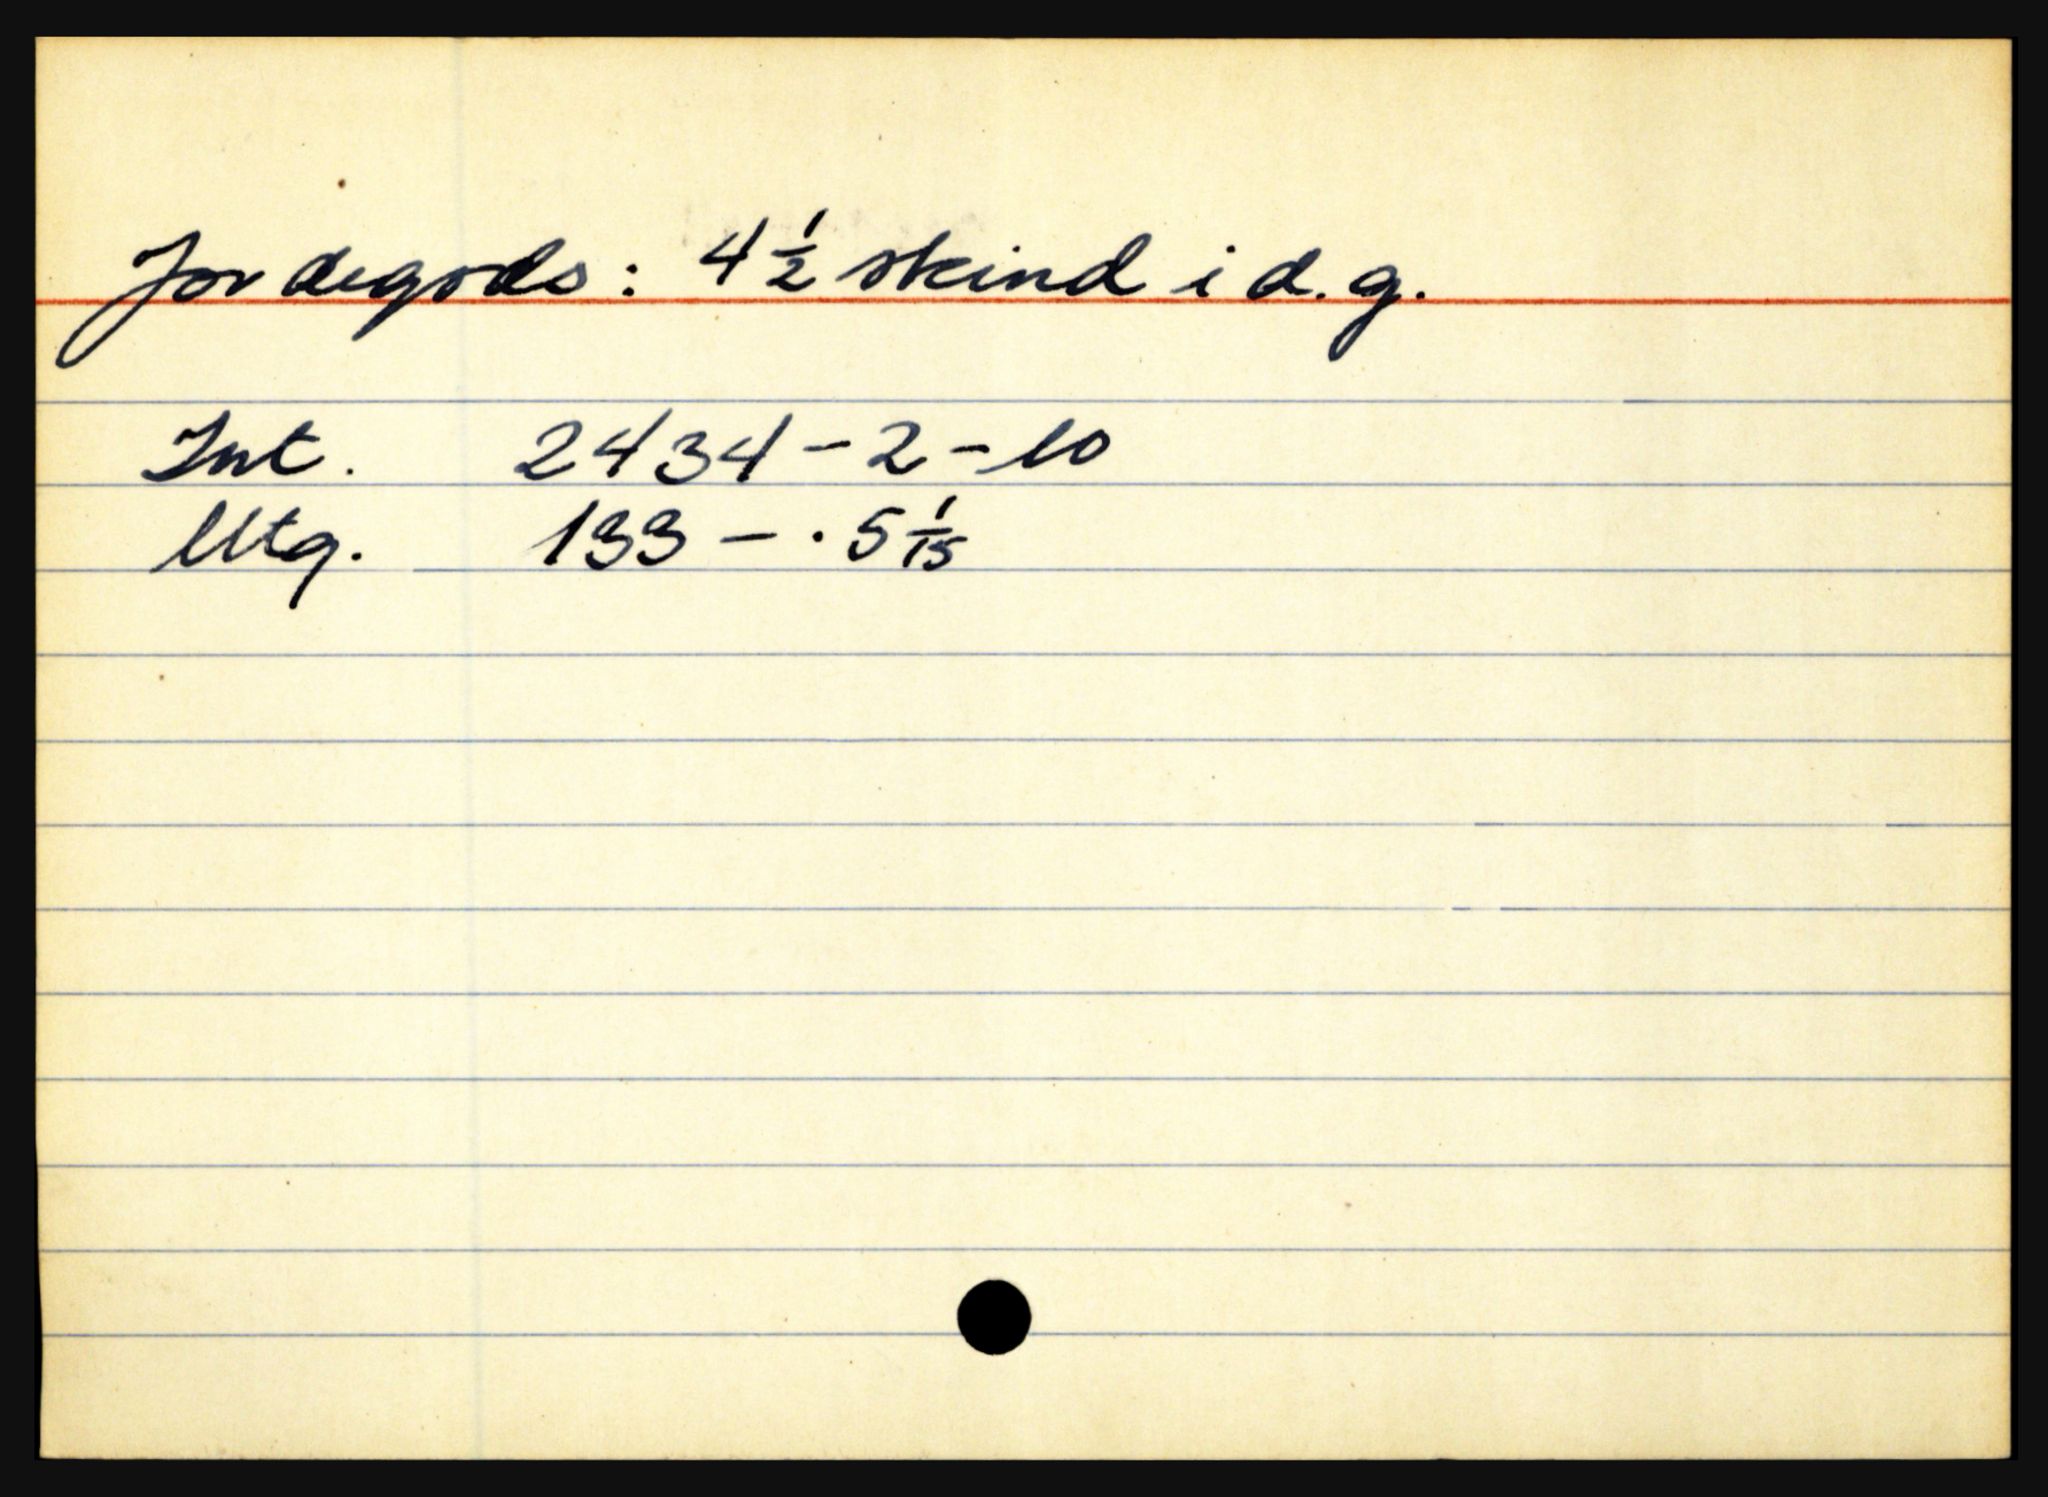 Jordegods: 4 1/2 skind i d. g.
Int. 2434 - 2 - 10
Utg. 133 - . 5 1/15